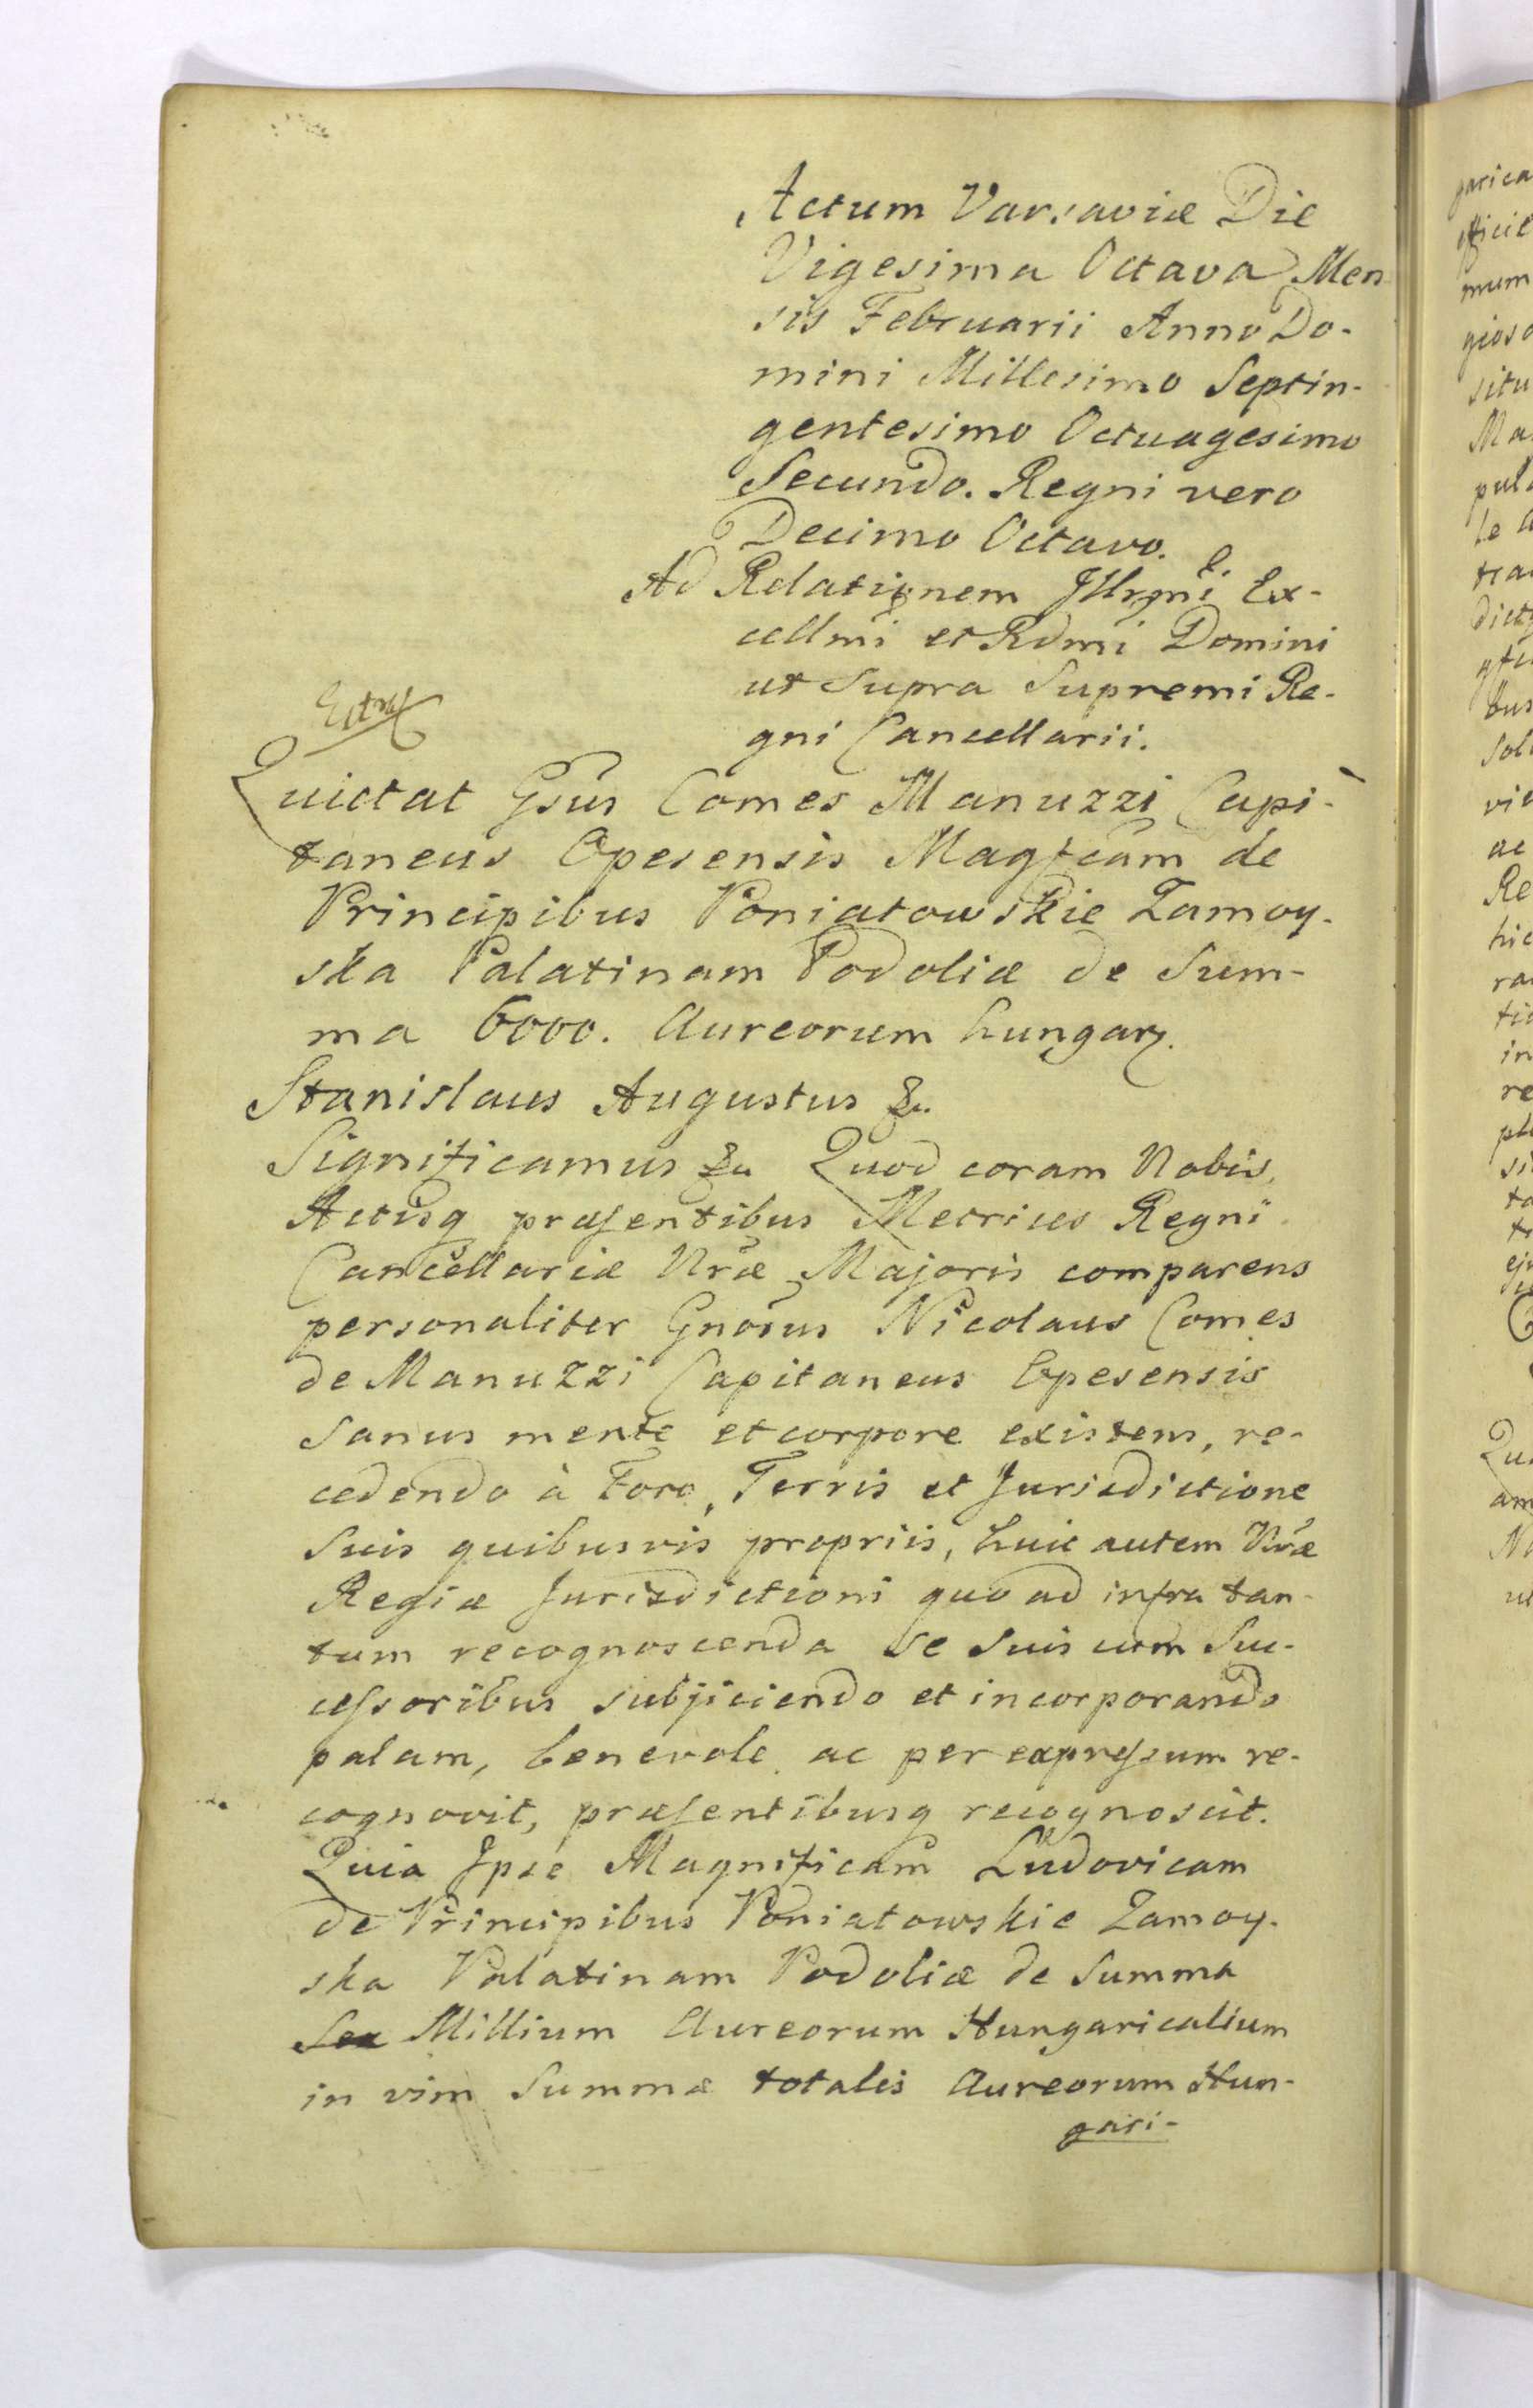 Actum Varsaviæ Die
Vigesima Octava Men
sis Februarii Anno Do-
mini Millesimo Septin-
gentesimo Octuagesimo
Secundo. Regni vero
Decimo Octavo.
Ad Relationem Illrmi Ex-
cellmi et Rdmi Domini
ut Supra Supremi Re-
gni Cancellarii.
Quietat Gsus Comes Manuzzi Capi-
taneus Opesensis Magfcam de
Principibus Poniatowskie Zamoy-
ska Palatinam Podoliæ de Sum-
ma 6000. Aureorum hungar.
Stanislaus Augustus &c.
Significamus &c Quod coram Nobis,
Actisq præsentibus Metrices Regni
Cancellariæ Nræ Majoris comparens
personaliter Gnosus Nicolaus Comes
de Manuzzi Capitaneus Opesensis
Sanus mente et corpore existens, re-
cedendo à Foro, Terris et Jurisdictione
Suis quibusvis propriis, huic autem Nræ
Regiæ Jurisdictioni quo ad infra tan-
tum recognoscenda se suis cum Suc-
cessoribus subjiciendo et incorporando
palam, benevole ac per expressum re-
cognovit, præsentibusq recognoscit.
Quia Ipse Magnificam Ludovicam
de Principibus Poniatowskie Zamoy-
ska Palatinam Podoliæ de Summa
Sex Millium Aureorum Hungaricalium
in vim Summæ totalis Aureorum Hun-
gari-